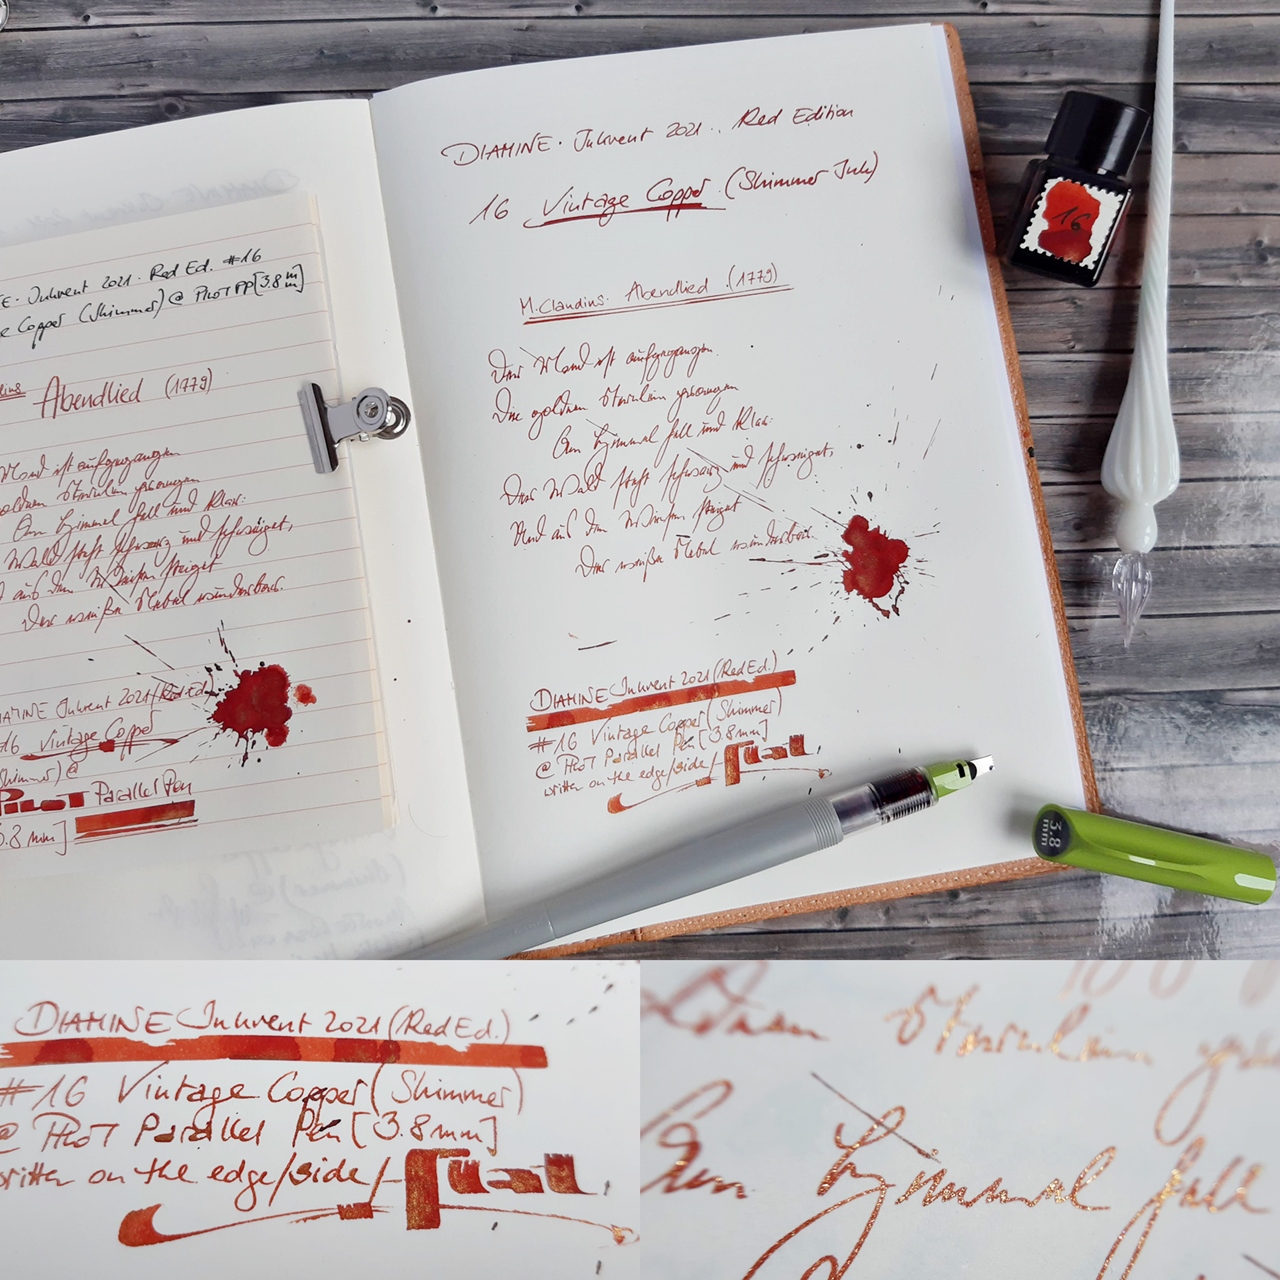 DIAMINE · Inkvent 2021 · Red Edition
16 Vintage Copper (Shimmer Ink)
M. Claudius · Abendlied (1779)
Der Mond ist aufgegangen
Die goldnen Sternlein prangen
Am Himmel hell und klar:
Der Wald steht schwarz und schweiget,
Und aus den Wiesen steiget
Der weiße Nebel wunderbar.
DIAMINE Inkvent 2021 (Red Ed.)
#16 Vintage Copper (Shimmer)
@ PILOT Parallel Pen [3.8mm]
written on the edge/side/flat
Inkvent 2021 · Red Ed. #16
Copper (Shimmer) @ PILOT PP [3.8 m]
Abendlied (1779)
Mond ist aufgegangen
goldnen Sternlein prangen
Am Himmel hell und klar:
Wald steht schwarz und schweiget,
aus den Wiesen steiget
Der weiße Nebel wunderbar.
DIAMINE Inkvent 2021 (Red Ed)
16 Vintage Copper
(Shimmer) @
PILOT Parallel Pen
3.8 mm]
16
3.8
mm
DIAMINE Inkvent 2021 (Red Ed.)
#16 Vintage Copper (Shimmer)
@ PILOT Parallel Pen [3.8mm]
written on the edge/side/flat
Sternlein
Am Himmel hell